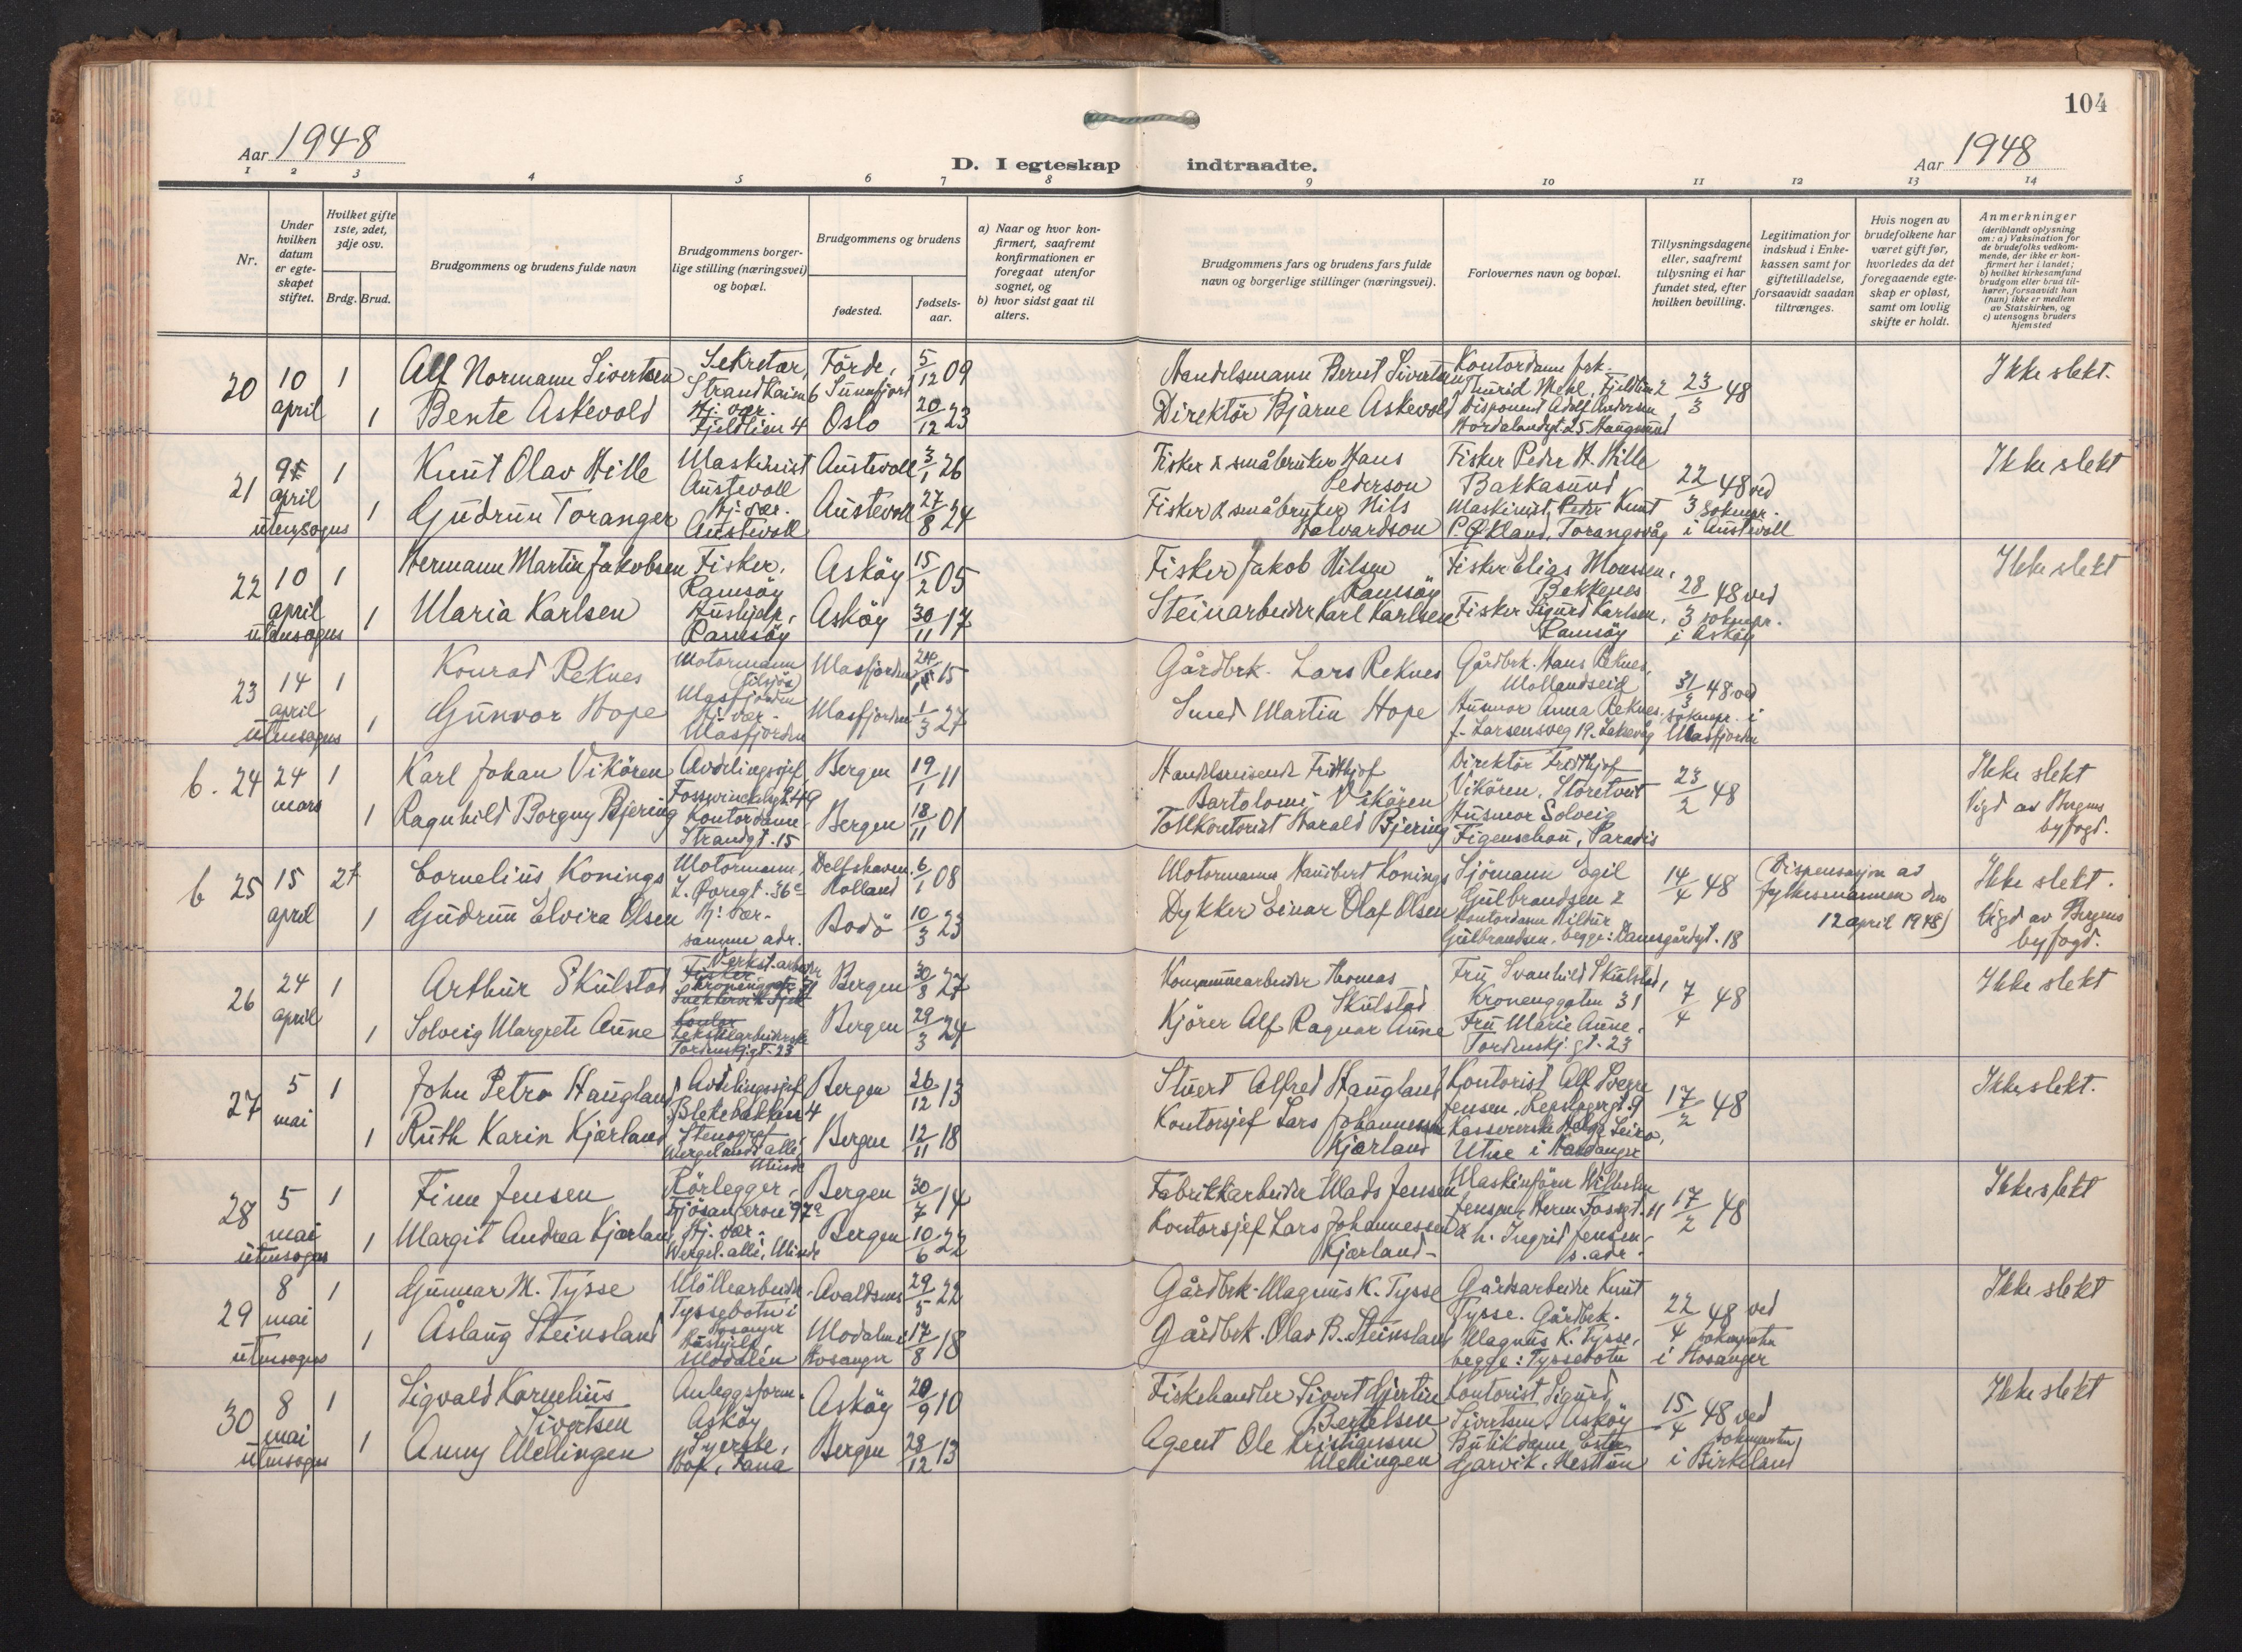 104
Aar 1948
D. I egteskap indtraadte.
Aar 1948
1 2 3 4 5 6 7 8 9 10 11 12 13 14
Nr.
Under hvilken datum er egteskapet stiftet.
Hvilket gifte 1ste, 2det, 3dje osv.
Brdg. Brud.
Brudgommens og brudens fulde navn
Brudgommens borgerlige stilling (næringsvei) og bopæl.
Brudgommens og brudens
fødested.
fødselsaar.
a) Naar og hvor konfirmert, saafremt konfirmationen er foregaat utenfor sognet, og
b) hvor sidst gaat til alters.
Brudgommens fars og brudens fars fulde navn og borgerlige stillinger (næringsvei).
Forlovernes navn og bopæl.
Tillysningsdagene eller, saafremt tillysning ei har fundet sted, efter hvilken bevilling.
Legitimation for indskud i Enkekassen samt for giftetilladelse, forsaavidt saadan tiltrænges.
Hvis nogen av brudefolkene har været gift før, hvorledes da det foregaaende egteskap er opløst, samt om lovlig skifte er holdt.
Anmerkninger (deriblandt oplysning om: a) Vaksination for de brudefolks vedkommende, der ikke er konfirmert her i landet; b) hvilket kirkesamfund brudgom eller brud tilhører, forsaavidt han (hun) ikke er medlem av Statskirken, og c) utensogns bruders hjemsted
20 10 april 1 Alf Normann Sivertsen Sekretær, Strandkaien 6 Förde, Sunnfjord 5/12 09 Handelsmann Bernt Sivertsen Kontordame frk. Turid Mehl, Fjeldlien 2 23/3 48 Ikke slekt.
1 Bente Askevold Hj. vær. Fjeldlien 4 Oslo 20/12 23 Direktör Bjarne Askevold Disponent Adolf Andersen, Hordalandgt. 25 Haugesund
21 april utensogns 1 Knut Olav Hille Maskinist Austevoll Austevoll 3/1 26 Fisker & småbruker Hans Pederson Fisker Peder H. Hille Bakkasund 22/3 48 ved soknepr. i Austevoll Ikke slekt
1 Gudrun Toranger Hj. vær. Austevoll Austevoll 27/8 24 Fisker & småbruker Nils Halvardson Maskinist Knut P. Økland, Torangsvåg
22 10 april utensogns 1 Hermann Martin Jakobsen Fisker, Ramsöy Asköy 15/2 05 Fisker Jakob Nilsen Ramsöy Fisker Elias Monssen, Bakkenes 28/3 48 ved soknepr. i Asköy Ikke slekt
1 Maria Karlsen Hushjelp, Ramsöy Asköy 30/11 17 Steinarbeider Karl Karlsen Fisker Sigurd Karlsen, Ramsöy
23 14 april utensogns 1 Konrad Reknes Motormann (tilsjös) Masfjorden Masfjorden 24/ 15 Gårdbrk. Lars Reknes Gårdbrk. Hans Reknes, Mollandseid 31/3 48 ved soknepr. i Masfjorden
1 Gunvor Hope Hj. vær. Masfjorden Masfjorden 1/3 27 Smed Martin Hope Husmor Anna Reknes, J. Larsensveg 19. Laksevåg
b. 24 24 mars 1 Karl Johan Vikören Avdelingssjef, Fosswinckelsgt. 49 Bergen 19/1 11 Handelsreisende Fridthjof Bartolomi Vikören Direktör Fridthjof Vikören, Storetveit 23/2 48 Ikke slekt Vigd av Bergens byfogd.
1 Ragnhild Borgny Bjering Kontordame, Strandgt. 15 Bergen 18/11 01 Tollkontorist Harald Bjering Husmor Solveig Figenschou, Paradis
b 25 15 april 2 Cornelius Konings Motormann, L. Övregt. 36 Delfshaven, Holland 6/1 08 Motormann Konings Sjömann Egil Gulbrandsen & 14/4 48 (Dispensasjon av fylkesmannen den 12 april 1948) Ikke slekt. Vigd av Bergens byfogd.
1 Gudrun Elvira Olsen Hj. vær. samme adr. Bodö 10/3 23 Dykker Einar Olaf Olsen Kontordame Hildur Gulbrandsen, begge: Damsgårdsgt. 18
26 24 april 1 Arthur Skulstad Verkst. arbeider Kronenggate 31 Bergen 30/8 27 Kommunearbeider Thomas Skulstad Fru Svanhild Skulstad, Kronenggaten 31 7/4 48 Ikke slekt
1 Solveig Margrete Aune Tekstilarbeiderske Tordenskj.gt. 23 Bergen 29/3 24 Kjörer Alf Ragnar Aune Fru Marie Aune, Tordenskj. gt. 23
27 5 mai 1 John Petro Haugland Avdelingssjef Blekebakken 4 Bergen 26/12 13 Stuert Alfred Haugland Kontorist Alf Sverre Jensen, Repslagergt. 9 17/2 48 Ikke slekt.
1 Ruth Karin Kjærland Stenograf, Wergelands alle, Minde Bergen 12/11 18 Kontorsjef Lars Johannessen Kjærland Kassererske Helga Leiro, Utne i Hardanger
28 5 mai utensogns 1 Finn Jensen Rörlegger, Fjösangervei 97a Bergen 30/7 14 Fabrikkarbeider Mads Jensen Maskinförer Wilhelm Jensen, Herm. Fossgt. 11 17/2 48 Ikke slekt
1 Margit Andrea Kjærland Hj. vær. Wergel. alle, Minde Bergen 10/6 22 Kontorsjef Lars Johannessen Kjærland & h. Ingrid Jensen, s. adr.
29 8 mai utensogns 1 Gunnar M. Tysse Möllearbeider Tyssebotn i Hosanger Avaldsnes 29/5 22 Gårdbrk. Magnus K. Tysse Gårdsarbeider Knut Tysse. 22/4 48 ved soknepresten i Hosanger Ikke slekt
1 Åslaug Steinsland Hushjelp, Modalen Modalen i Hosanger 17/8 18 Gårdbrk. Olav B. Steinsland Gårdbrk. Magnus K. Tysse, begge: Tyssebotn
30 8 mai utensogns 1 Sigvald Kornelius Sivertsen Anleggsform. Asköy Asköy 20/9 10 Fiskehandler Sivert Gjertin Bertelsen Kontorist Sigurd Sivertsen, Asköy 15/4 48 ved soknepresten i Birkeland Ikke slekt
1 Anny Mellingen Syerske, Hop, Fana Bergen 28/12 13 Agent Ole Kristiansen Mellingen Butikdame Ester Gjarvik, Nesttun